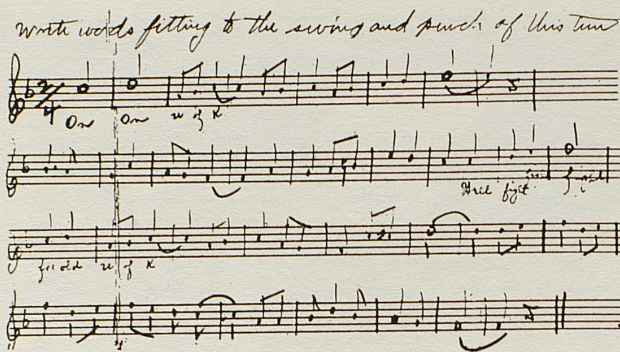 Write words fitting to the swing and punch of this tune
On On U of K
We'll fight
for old U of K